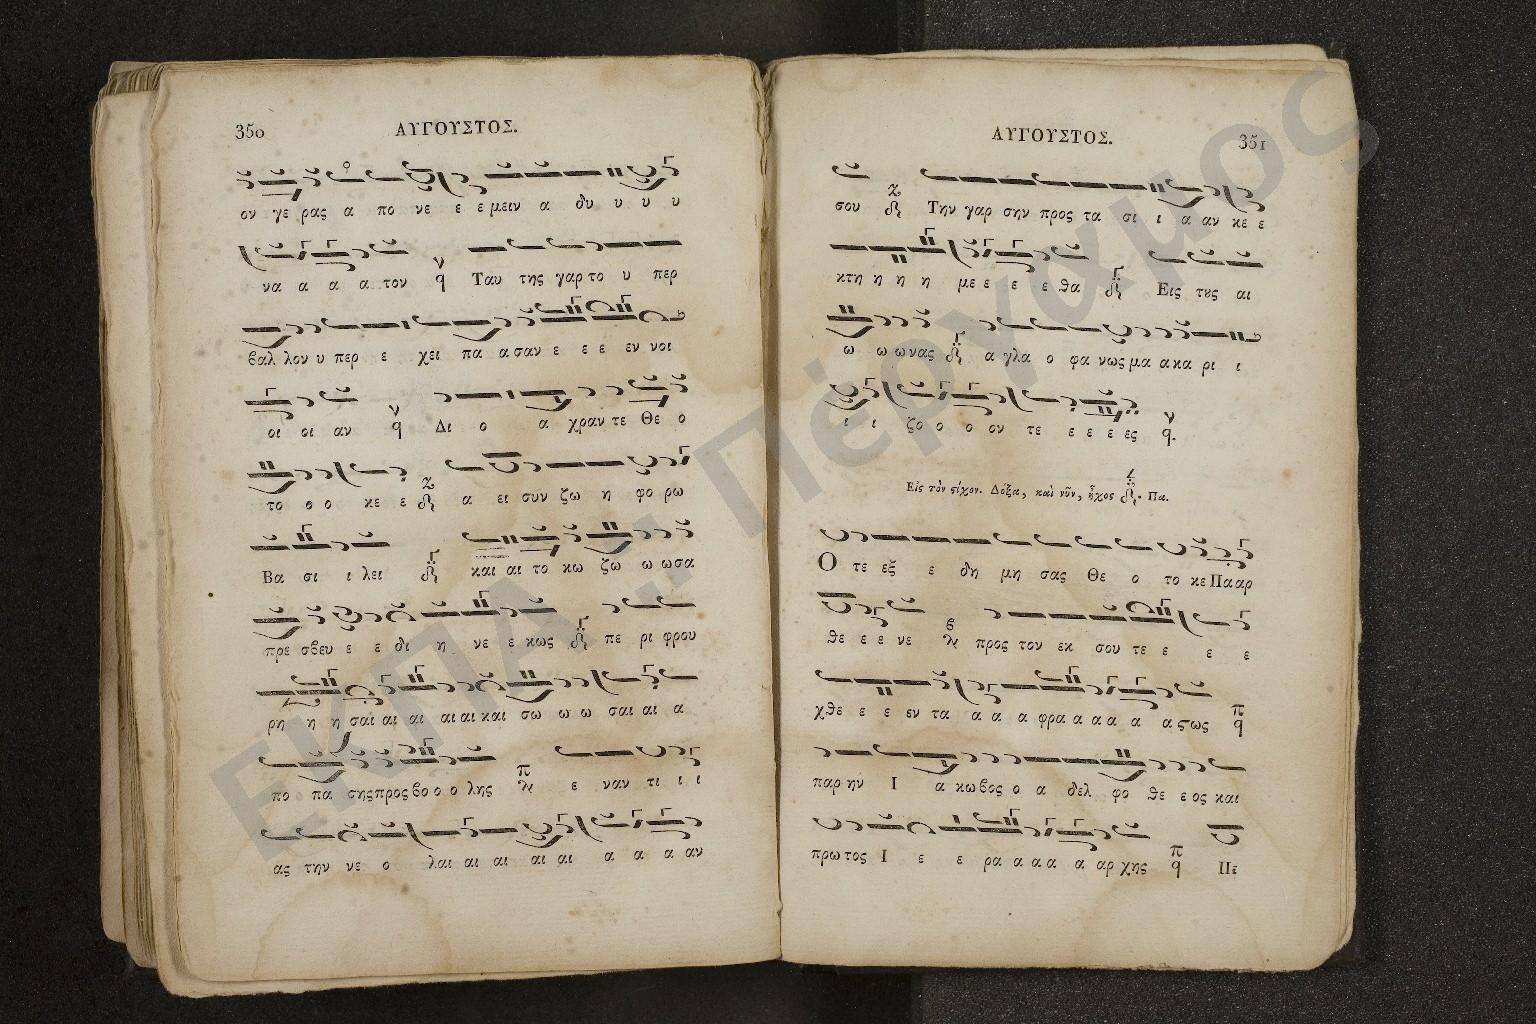 350
ΑΥΓΟΥΣΤΟΣ.
ον γε ρας α πο νε ε ε μειν α δυ υ υ υ
να α α α τον Ταυ της γαρ το υ περ
βαλ λον υ περ ε χει πα α σαν ε ε ε εν νοι
οι οι αν Δι ο α χραν τε Θε ο
το ο ο κε ε α ει συν ζω η φο ρω
Βα σι ι λει και αι το κω ζω ω ω σα
πρε σβευ ε ε δι η νε ε κως πε ρι φρου
ρη η η σαι αι αι αι αι και σω ω ω σαι αι α
πο πα σης προς βο ο ο λης ε ναν τι ι ι
ας την νε ο λαι αι αι αι αι α α α αν
ΑΥΓΟΥΣΤΟΣ.
351
σου Την γαρ σην προς τα σι ι α αν κε ε
κτη η η η με ε ε ε θα Εις τȣς αι
ω ω ω νας α γλα ο φα νως μα α κα ρι ι
ι ι ζο ο ο ον τε ε ε ε ες
Εἰς τὸν ϛίχον. Δόξα, καὶ νῦν, ἦχος Πα.
Ο τε εξ ε δη μη σας Θε ο το κε Πα αρ
θε ε ε νε προς τον εκ σου τε ε ε ε
χθε ε ε εν τα α α α φρα α α α α α ϛως
παρ ην Ι α κω βος ο α δελ φο θε ε ος και
πρω τος Ι ε ε ρα α α α α αρ χης Πε
ΕΚΠΑ.: Πέργαμος